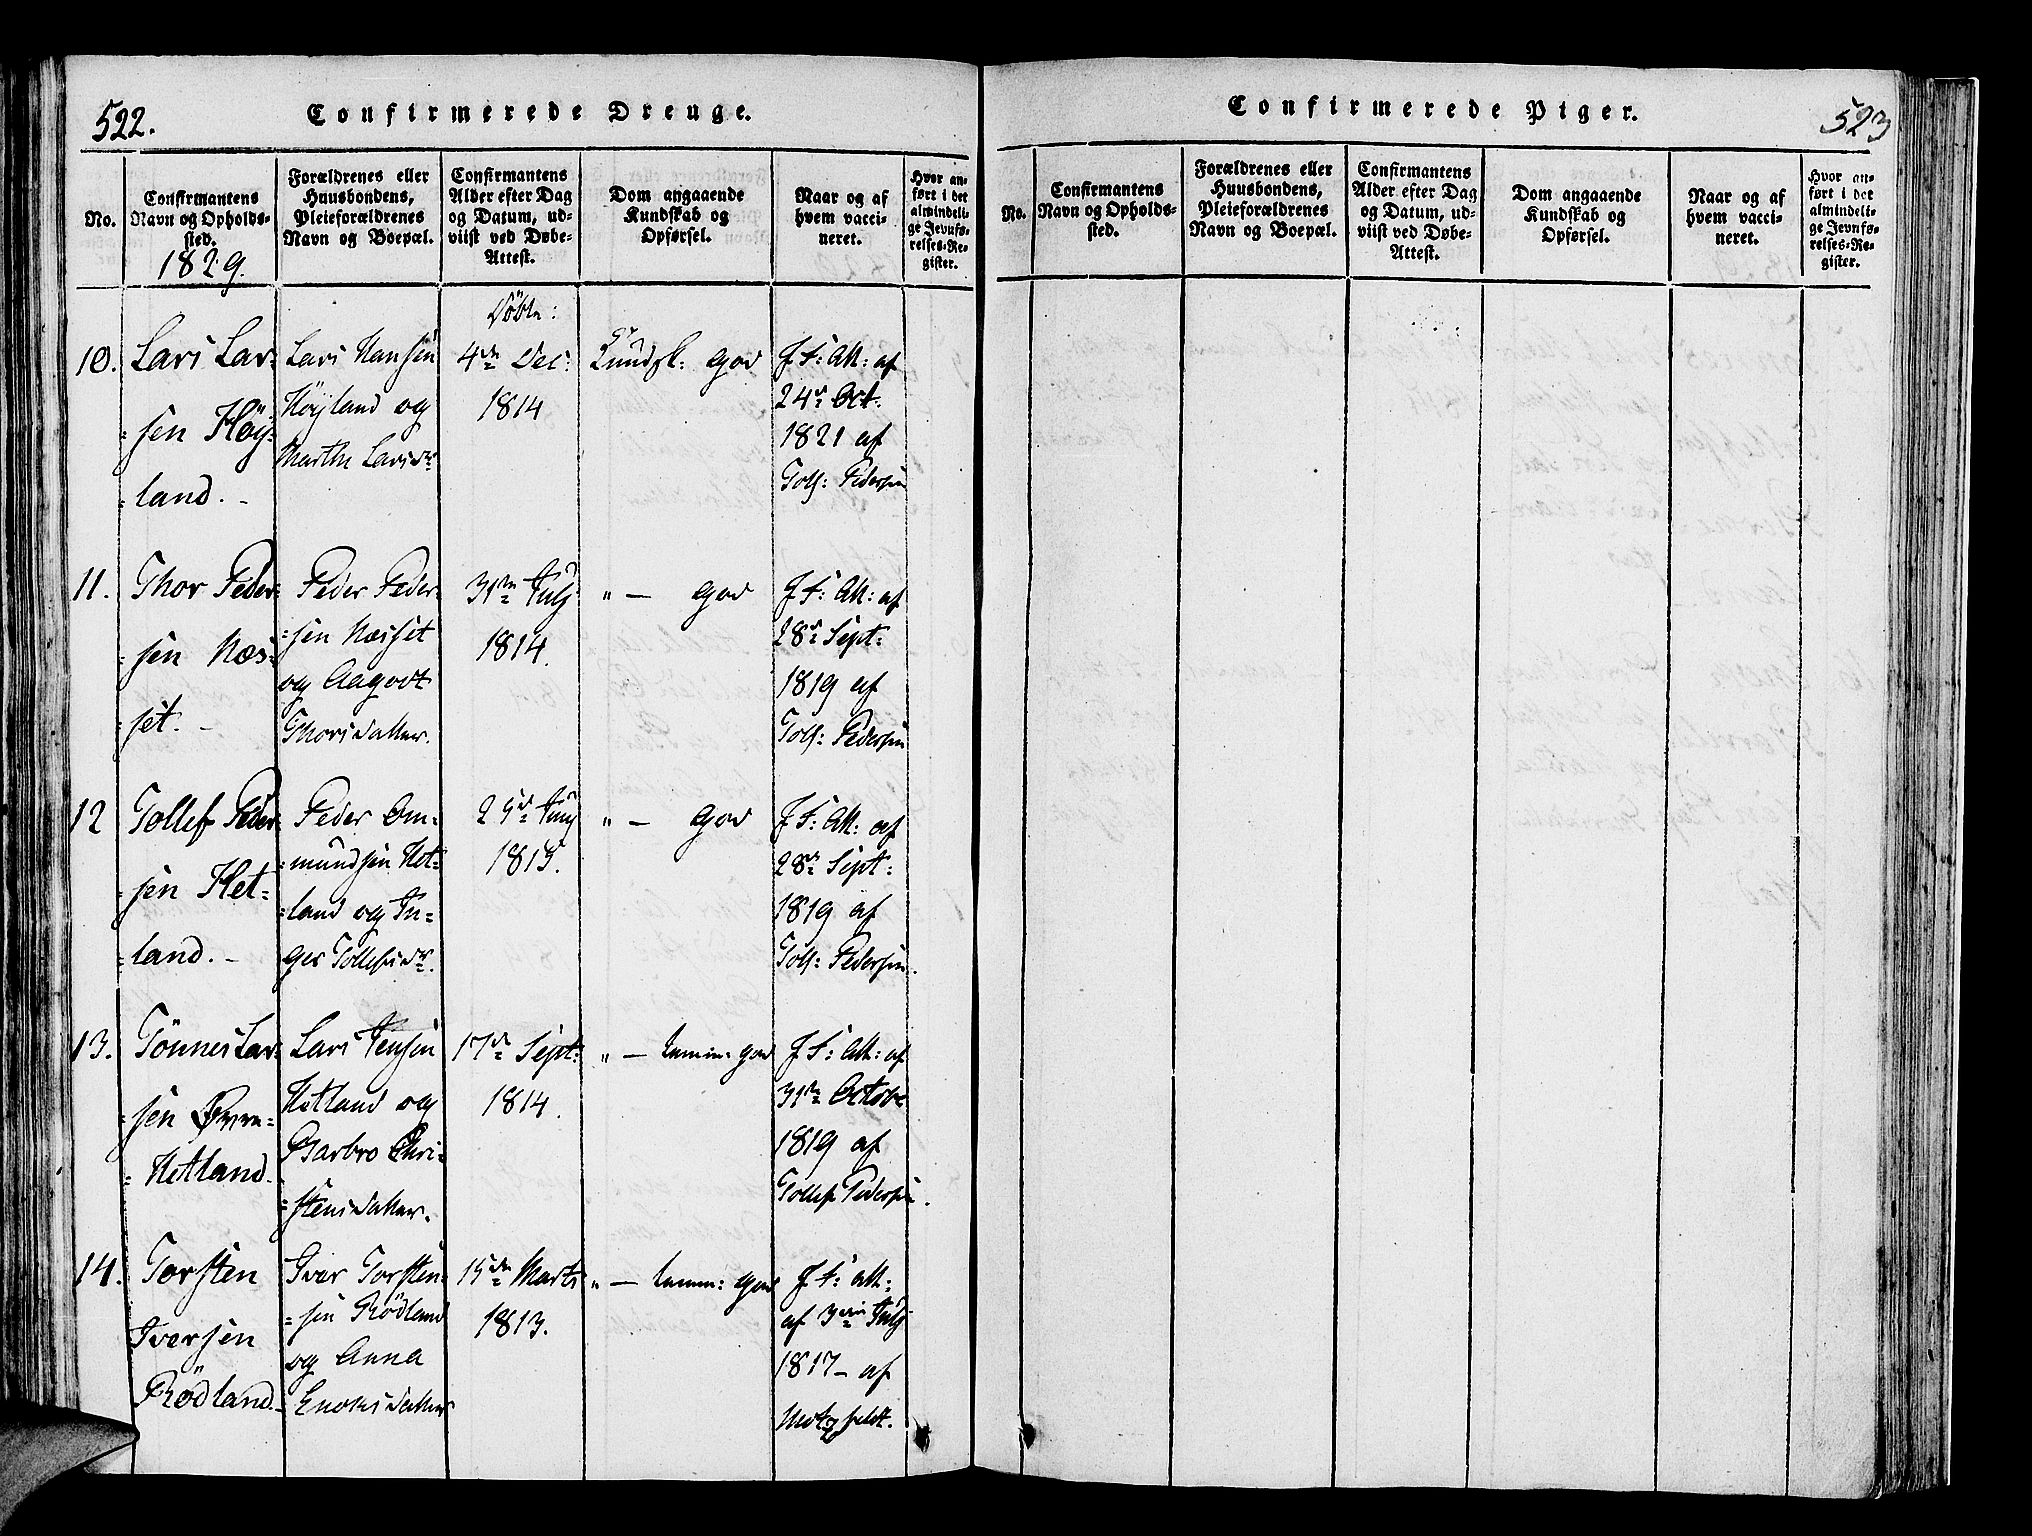 522.
Confirmerede Drenge.
No.
Confirmantens
Navn og Opholds-
sted.
1829.
Forældrenes eller
Huusbondens,
Pleieforældrenes
Navn og Boepæl.
Confirmantens
Alder efter Dag
og Datum, ud-
viist ved Døbe-
Attest.
Dom angaaende
Kundskab og
Opførsel.
Naar og af
hvem vacci-
neret.
Hvor an-
ført i det
almindeli-
ge Jevnfø-
relses-Re-
gister.
10.
Lars Lar-
sen Höy-
land.
Lars Hansen
Höyland og
Marthe Larsdr
Döbte:
4de Dec:
1814
Kundsk: god
f. S: Att: af
24de Oct.
1821 af
Toll: Pedersen
11.
Thor Peder-
sen Næs-
set.
Peder Peder-
sen Næsset
og Aagodt
Thorsdatter.
31te July
1814.
" — god
f. S: Att: af
28de Sept:
1819 af
Toll: Pedersen
12
Tollef Peder
sen Het-
land.
Peder Om-
mundsen Het-
land og In-
ger Tollefsdr.
25de July
1813.
" — god
f. S: Att: af
28de Sept:
1819 af
Toll: Pedersen.
13.
Tönnes Lar-
sen Øvre-
Hetland.
Lars Jensen
Hetland og
Barbro Chri-
stensdatter.
17de Sept:
1814.
" — temm: god
f. S: Att: af
31te Octobr
1819 af
Tollef Pedersen.
14.
Torsten
Iversen
Rödland.
Iver Torsten-
sen Rödland
og Anna
Enoksdatter
15de Marts
1813.
" — temm: god
f. S: Att:
af 3die July
1817 - af
Motzfeldt.
Confirmerede Piger.
523
No.
Confirmantens
Navn og Opholds-
sted.
Forældrenes eller
Huusbondens,
Pleieforældrenes
Navn og Boepæl.
Confirmantens
Alder efter Dag
og Datum, ud-
viist ved Døbe-
Attest.
Dom angaaende
Kundskab og
Opførsel.
Naar og af
hvem vacci-
neret.
Hvor an-
ført i det
almindeli-
ge Jevnfø-
relses-Re-
gister.